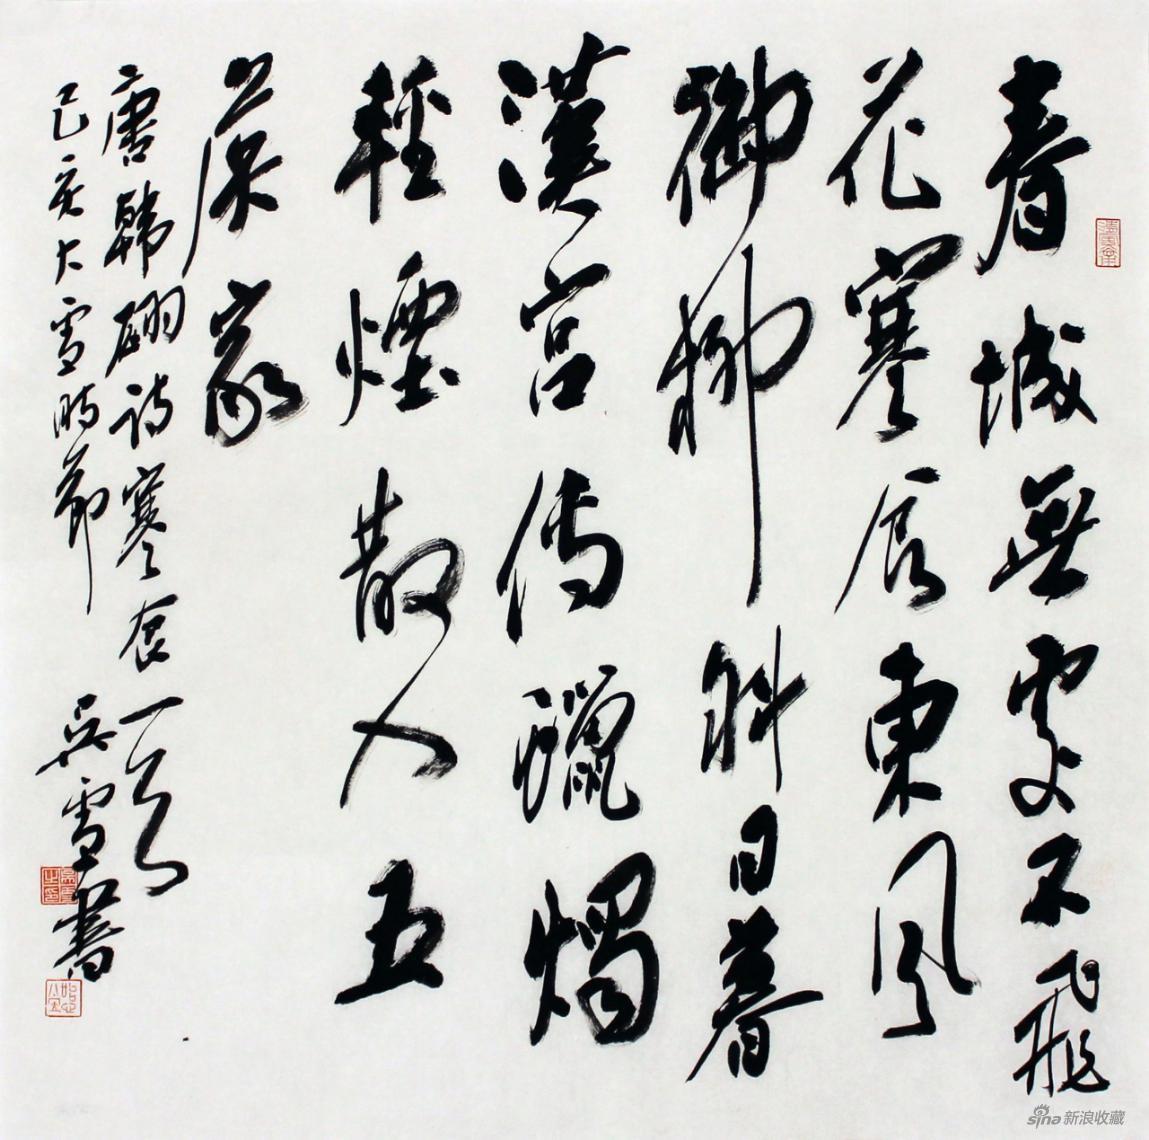 春城無處不飛
花寒食東風
御柳斜日暮
漢宮傳蠟燭
輕煙散入五
侯家
唐韓翃詩寒食一首
己亥大雪時節 吳雪書
sina新浪收藏